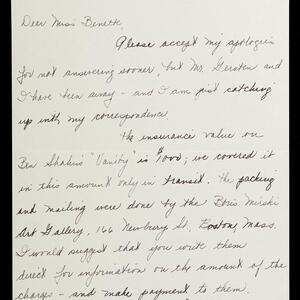 Dear Miss Benette,
Please accept my apologies
for not answering sooner, but Mr. Gersten and
I have been away - and I am just catching
up with my correspondence.
The insurance value on
Ben Shahn's "Vanity" is; we covered it
in this amount only in transit. The packing
and mailing were done by the Boris Mirski
Art Gallery, 166 Newbury St, Boston, Mass.
I would suggest that you write them
direct for information on the amount of the
charges - and make payment to them.